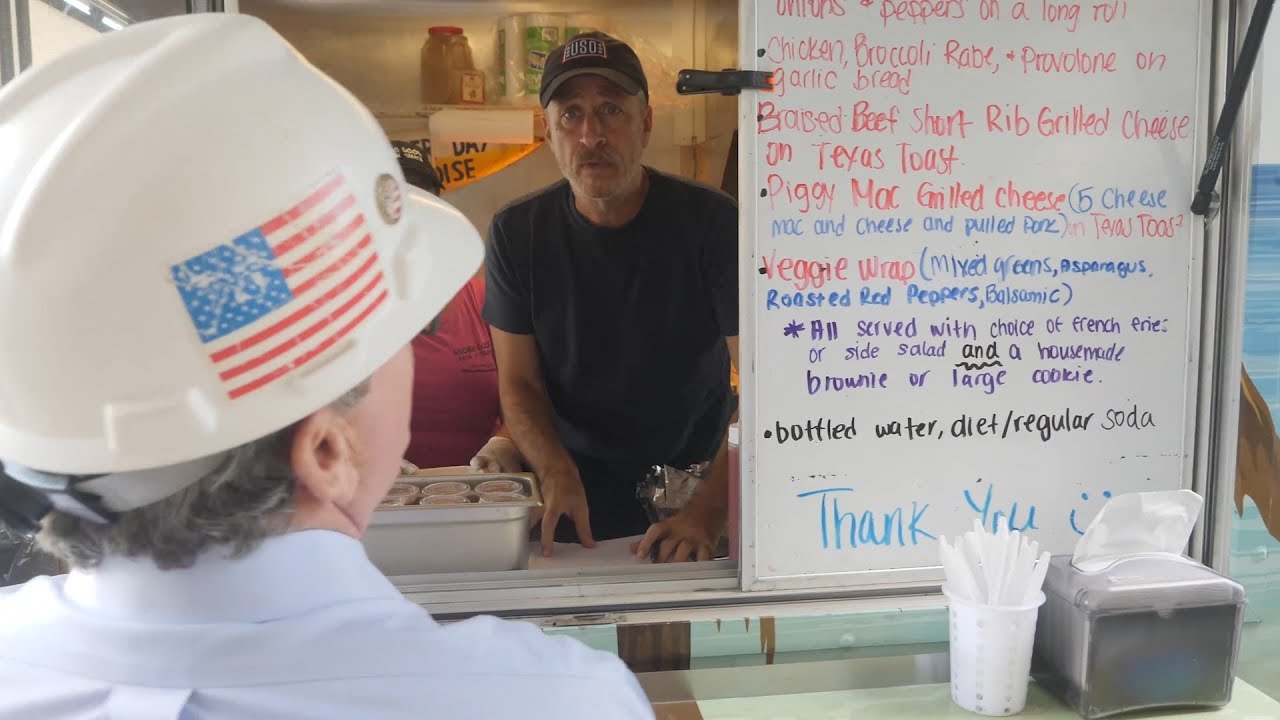 onions + peppers on a long roll
• Chicken, Broccoli Rabe, + Provolone on
garlic bread
• Braised Beef Short Rib Grilled Cheese
on Texas Toast.
• Piggy Mac Grilled cheese (5 Cheese
mac and cheese and pulled pork) on Texas Toast
• Veggie wrap (Mixed greens, Asparagus,
Roasted Red Peppers, Balsamic)
* All served with choice of french fries
or side salad and a housemade
brownie or large cookie.
• bottled water, diet/regular soda
Thank You :)
USO
DAY